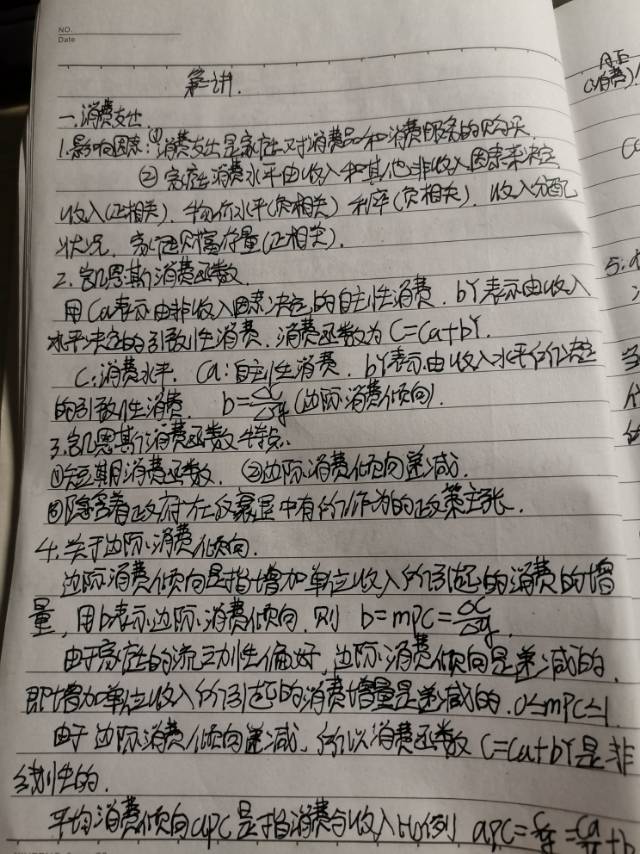 NO.
Date
第一讲.
一.消费支出
1.影响因素:①消费支出是家庭对消费品和消费服务的购买.
②家庭消费水平由收入和其他非收入因素来决定
收入(正相关).物价水平(负相关) 利率(负相关).收入分配
状况.家庭财富存量(正相关).
2.凯恩斯消费函数.
用Ca表示由非收入因素决定的自主性消费.bY表示由收入
水平决定的引致性消费.消费函数为C=Ca+bY.
C:消费水平. Ca:自主性消费. bY表示由收入水平所决定
的引致性消费. b=△C/△y(边际消费倾向).
3.凯恩斯消费函数特点.
①短期消费函数. ②边际消费倾向递减.
③隐含着政府在衰退中有所作为的政策主张.
4.关于边际消费倾向.
边际消费倾向是指增加单位收入所引起的消费的增
量,用b表示边际消费倾向.则 b=mpc=△C/△y.
由于家庭的流动性偏好,边际消费倾向是递减的.
即增加单位收入所引起的消费增量是递减的.0≤mpc≤1
由于边际消费倾向递减,所以消费函数C=Ca+bY是非
线性的.
平均消费倾向apc是指消费占收入比例 apc=C/y=Ca/y+b
AE
(消费)
5.